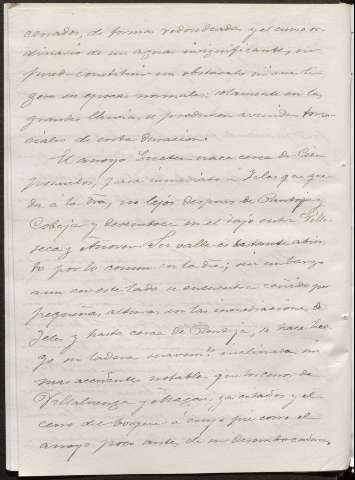 cerrados, de forma redondeada y el curso or-
dinario de sus aguas insignificante, sin
pueda constituir un obstaculo ni aun li-
gero en epocas normales: solamente en las
grandes lluvias se producen avenidas torren-
ciales de corta duracion.
El arroyo Guaten nace cerca de Ciem-
pozuelos, pasa inmediato á Yeles que que-
da á la dra, no lejos despues de Pantoja y
Cobeja y desemboca en el Tajo entre Ville-
seca y Añover. Su valle es bastante abier-
to por lo comun en la dra; sin embargo
aun con este lado se encuentra ceñido por
pequeñas alturas en las inmediaciones de
Yeles y hasta cerca de Pantoja, se hace lue-
go en ladera suavemte inclinada, sin
mas accidentes notables que los cerros de
Villaluenga y Magan, ya citados y el
cerro del Borque á cuyo pie corre el
arroyo poco antes de su desembocadura,